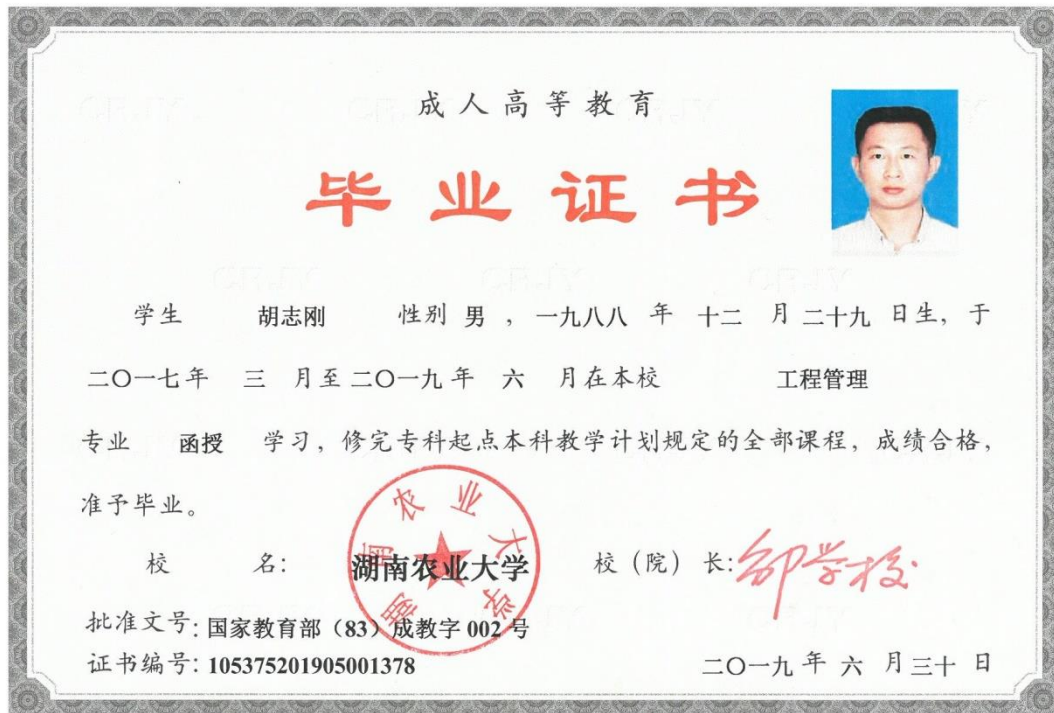 成人高等教育
毕业证书
学生 胡志刚 性别 男 ，一九八八 年 十二 月 二十九 日生，于
二〇一七年 三 月至二〇一九年 六 月在本校 工程管理
专业 函授 学习，修完专科起点本科教学计划规定的全部课程，成绩合格，
准予毕业。
校 名：湖南农业大学 校（院）长：邹学校
湖南农业大学
批准文号：国家教育部（83）成教字 002 号
证书编号：105375201905001378 二〇一九 年 六 月三十 日